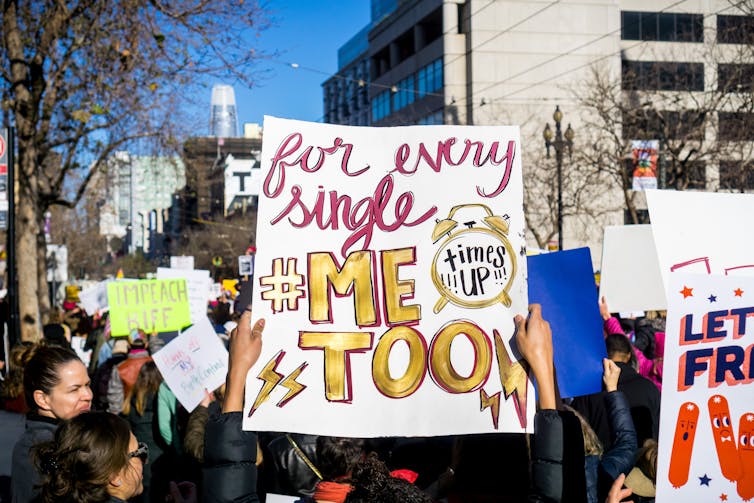 for every
single
#ME
TOO
times
UP!!!
IMPEACH
LET
FR